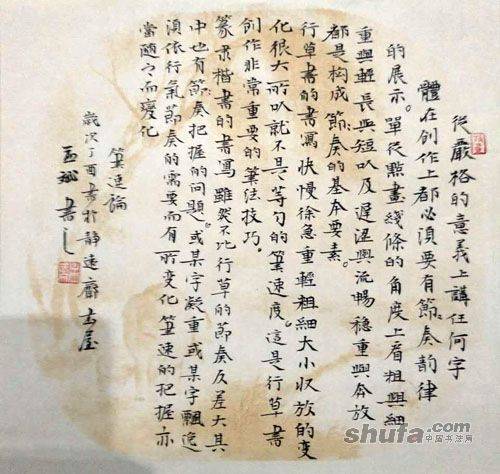 從嚴格的意義上講任何字
體在創作上都必須要有節奏韵律
的展示。單從點畫綫條的角度上看粗與細
重與輕長與短以及遲澀與流暢穩重與奔放
都是构成節奏的基本要素。
行草書的書寫快慢徐急重輕粗細大小收放的变
化很大所以就不是等匀的筆速度。這是行草書
創作非常重要的筆法技巧。
篆隶楷書的書寫雖然不比行草的節奏反差大其
中也有節奏把握的问題。或某字凝重或某字飄逸
須依行氣節奏的需要而有所變化筆速的把握亦
當隨之而變化
筆速論
歲次丁酉書於靜遠齋書屋
書之
shufa.com
中国书法网